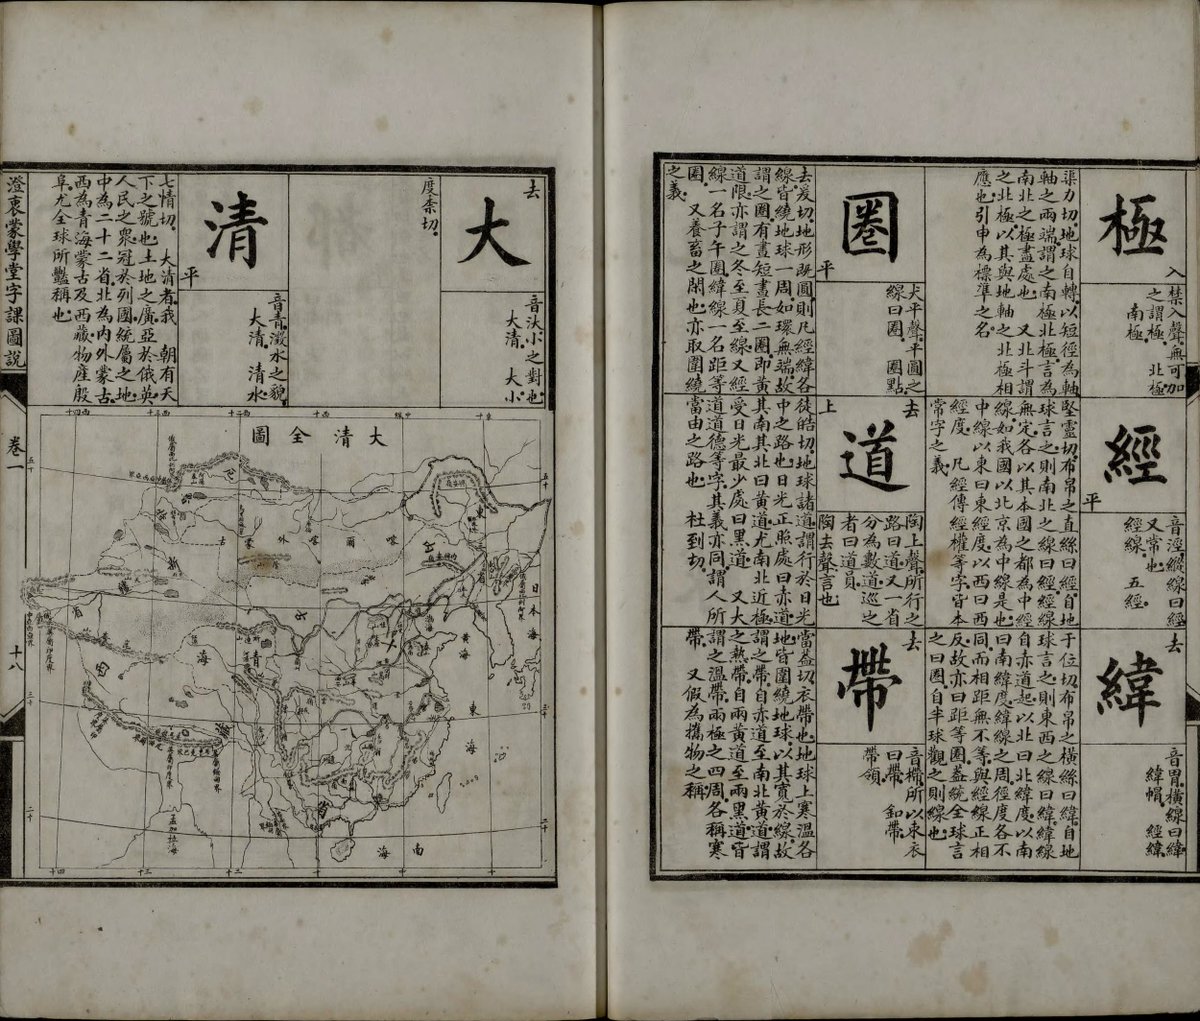 極
入
禁入聲.無可加
之謂極. 北極.
南極.
渠力切.地球自轉.以短徑為軸
軸之兩端.謂之南極北極.言為
南北之極盡處也. 又北斗謂
之北極.以其與地軸之北極相
應也.引申為標準之名.
經
平
音涇.縱線曰經
又常也.
經線. 五經.
堅靈切.布帛之直絲曰經.自地
球言之.則南北之線曰經.經線
無定.各以其本國之都為中經
線.如我國以北京為中線是也.
中線以東曰東經度.以西曰西
經度. 凡經傳經權等字.皆本
常字之義.
緯
去
音胃.橫線曰緯
緯帽. 經緯.
于位切.布帛之橫絲曰緯.自地
球言之.則東西之線曰緯.緯線
自赤道起.以北曰北緯度.以南
曰南緯度.緯線之周徑度各不
同.而相距無不等.與經線正相
反.故亦曰距等圈.蓋統全球言
之曰圈.自半球觀之則線也.
圈
平
犬平聲.平圓之
線曰圈. 圈點.
去爰切.地形既圓.則凡經緯各
線皆繞地球一周.如環無端.故
謂之圈.有晝短晝長二圈.即黃
道限.亦謂之冬至夏至線.又經
線一名子午圈.緯線一名距等
圈. 又養畜之閑也.亦取圍繞
之義.
道
去
上
陶上聲.所行之
路曰道.又一省
分為數道.巡之
者曰道員.
陶去聲.言也.
徒皓切.地球諸道.謂行於日光
中之路也.日光正照處曰赤道.
其南其北曰黃道.尤南北近極
受日光最少處曰黑道. 又大
道道德等字.其義亦同.謂人所
當由之路也. 杜到切.
帶
去
所以束衣
曰帶. 鉤帶.
帶領.
當蓋切.衣帶也.地球上寒溫各
地皆圍繞地球.以其寬於線.故
謂之帶.自赤道至南北黃道.謂
之熱帶.自兩黃道至兩黑道.皆
謂之溫帶.兩極之四周.各稱寒
帶. 又假為攜物之稱.
大
去
音汏.小之對也.
大清. 大小.
度柰切.
清
平
音青.澂水之貌.
大清. 清水.
七情切. 大清者.我 朝有天
下之號也.土地之廣.亞於俄英.
人民之眾.冠於列國.統屬之地.
中為二十二省.北為內外蒙古.
西為青海蒙古及西藏.物產殷
阜.尤全球所豔稱也.
大清全圖
外蒙古喀爾喀
日本海
黃海
東海
南海
青海
孟加拉海
澄衷蒙學堂字課圖說
卷一
十八